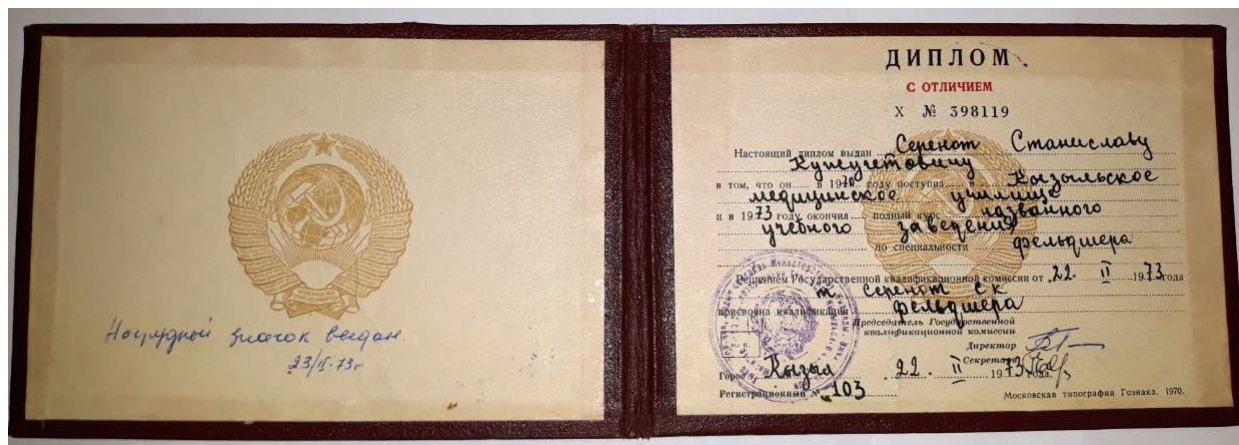 Нагрудной значок выдан.
23/II-73г
ДИПЛОМ
С ОТЛИЧИЕМ
X № 398119
Настоящий диплом выдан Серенот Станиславу
Кужугетовичу
в том, что он в 1970 году поступил в Кызыльское
медицинское училище
и в 1973 году окончил полный курс названного
учебного заведения
по специальности фельдшера
Решением Государственной квалификационной комиссии от 22. II 1973 года
т Серенот С К
присвоена квалификация фельдшера
Председатель Государственной
квалификационной комиссии
Директор
Секретарь
Город Кызыл 22. II 1973 года.
Регистрационный № 103
Московская типография Гознака. 1970.